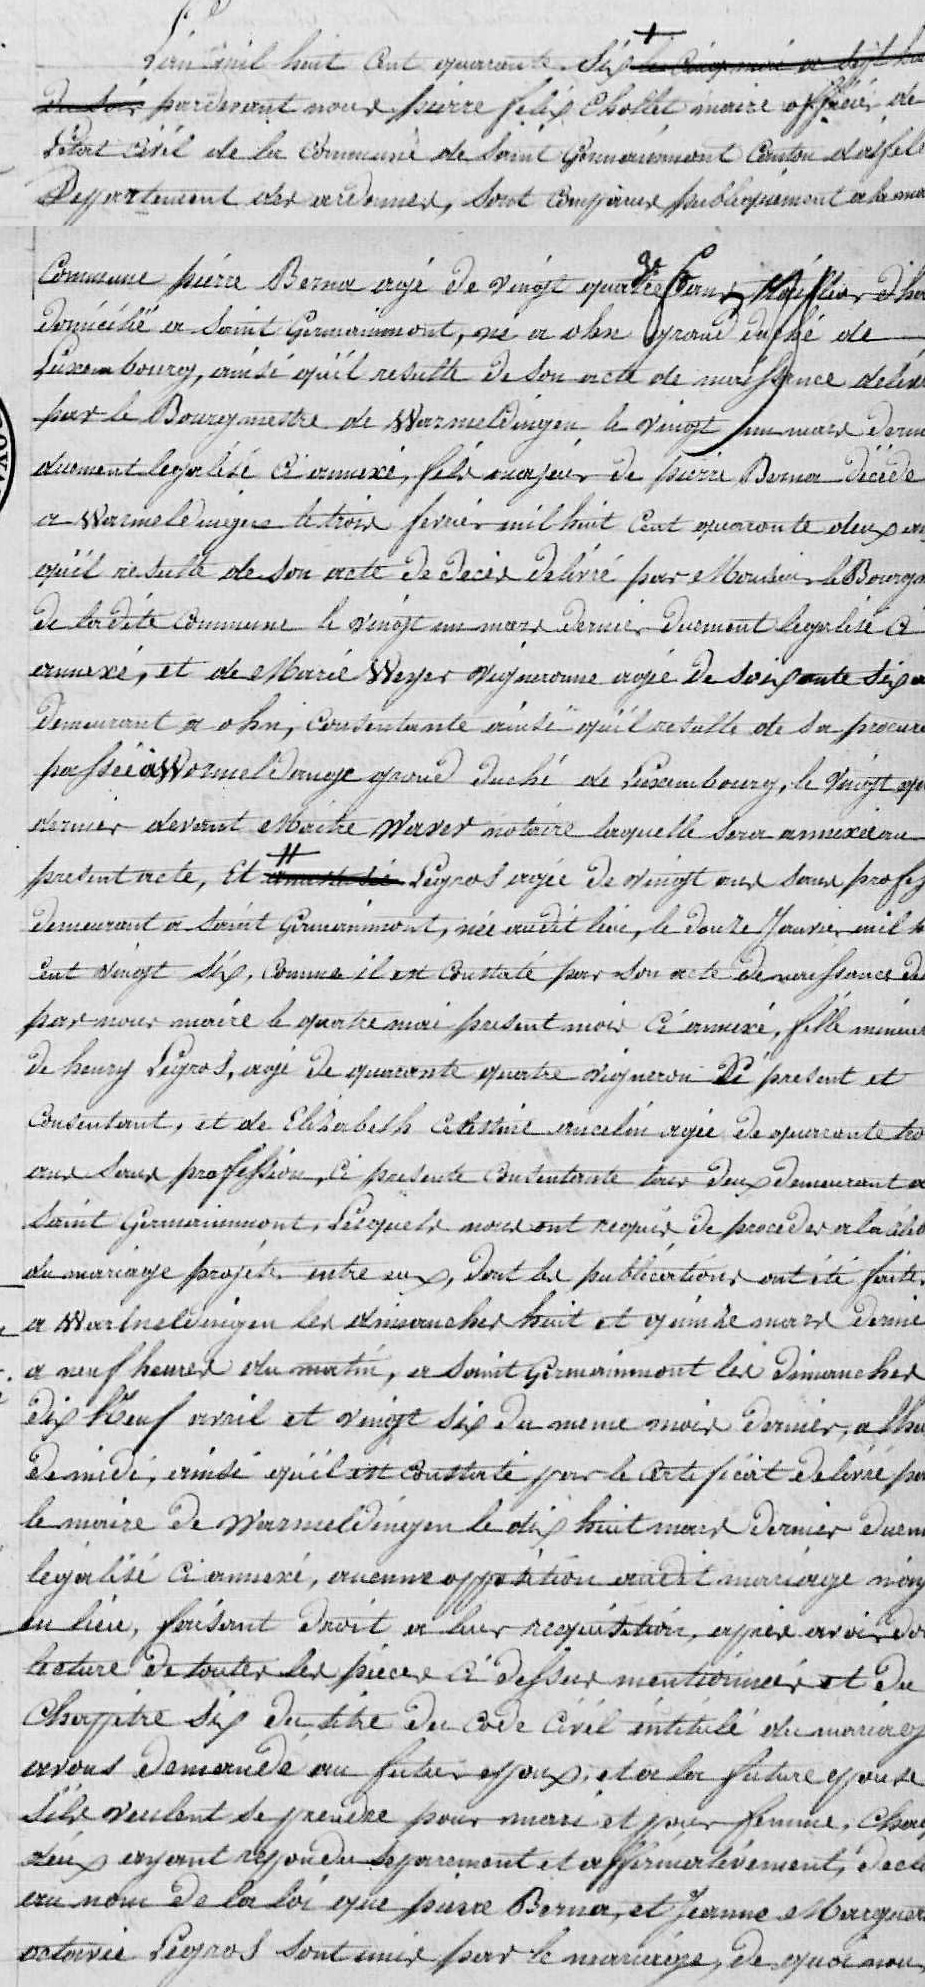 L'an mil huit cent quarante Six le cinq mai a sept
du soir pardevant nous pierre félix Chollet maire officier de
l'état civil de la Commune de Saint Germainmont Canton d'asfeld
Departement des ardennes, sont comparus publiquement a la
Commune pierre Berna agé de vingt quatre ans
domicilié a Saint Germainmont, né a ohn grand duché de
Luxembourg, ainsi qu'il resulte de son acte de naissance delivré
par le Bourgmestre de Warmeldingen le vingt un mars
duement legalisé ci annexé, fils majeur de pierre Berna décédé
a Warmeldingen le trois fevrier mil huit Cent quarante deux
qu'il resulte de son acte de deces delivré par Monsieur le Bourgm
de ladite Commune le vingt un mars dernier duement legalisé ci
annexé, et de Marie Weyer Vigneronne agée De soixante six a
demeurant a ohn, consentante ainsi qu'il resulte de sa procur
passée à Wormeldange grand duché de Luxembourg, le vingt
dernier devant Maitre notaire laquelle sera annexée au
present acte, Et Legros agée de vingt ans sans profes
demeurant a Saint Germainmont, née audit lieu, le douze Janvier mil h
cent vingt six, comme il est constaté par son acte de naissance de
par nous maire le quatre mai present mois ci annexé, fille mineur
de henry Legros, agé de quarante quatre vigneron ici present et
Consentant, et de Elisabeth Celestine ancelin agée de quarante tro
ans sans profession, ci presente consentante tous deux demeurant a
Saint Germainmont. Lesquels nous ont requis de proceder a la célé
du mariage projeté entre eux, dont les publications ont été faites
a Warmeldingen les dimanches huit et quinze mars dernie
a neuf heures du matin, a Saint Germainmont les Dimanches
dix Neuf avril et vingt six du meme mois dernier, a l'heu
de midi, ainsi qu'il est constaté par le certificat delivré pa
le maire de Warmeldingen le dix huit mars dernier duem
légalisé ci annexé, aucune opposition audit mariage n'ay
eu lieu, faisant droit a leur requisition, apres avoir do
lecture de toutes les pieces ci dessus mentionnées et du
Chapitre six du titre du code Civil intitulé du mariag
avons demandé au futur epoux, et a la future epouse
s'ils veulent se prendre pour mari et pour femme, Chac
deux ayant repondu separement et affirmativement, decla
au nom de la loi que pierre Berna, et Jeanne Marguer
octavie Legros sont unis par le mariage, de quoi nou